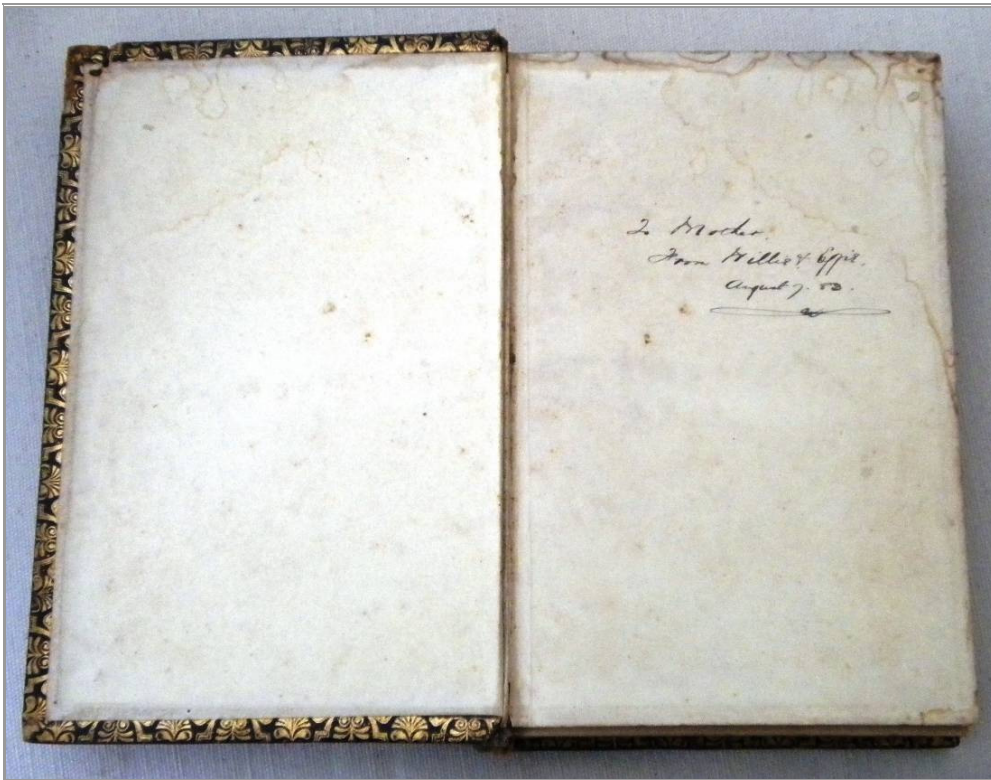 To Mother.
From Willie & Effie.
August 7.